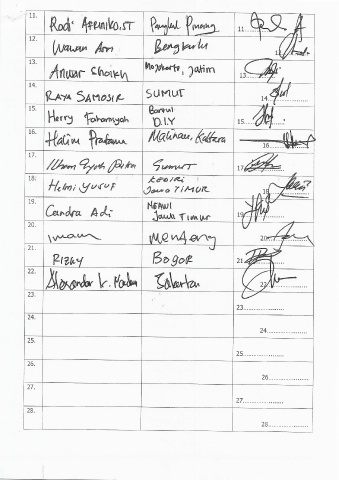 11. Rodi AFRINIKO, ST Pangkal Pinang 11
12. Wawan Ari Bengkulu 12
13. Anwar Shoikh Mojokerto, Jatim 13
14. RAYA SAMOSIR SUMUT 14
15. Herry Bantul
D.I.Y 15
16. Halim Pratama Malinau, Kaltara 16
17. SUMUT 17
18. Helmi YUSUF KEDIRI
Jawa TIMUR 18
19. Candra Adi NGAWI
Jawa Timur 19
20. imam Menteng 20
21. RIZKY BOGOR 21
22. Alexander 22
23. 23..................
24. 24..................
25. 25..................
26. 26..................
27. 27..................
28. 28..................